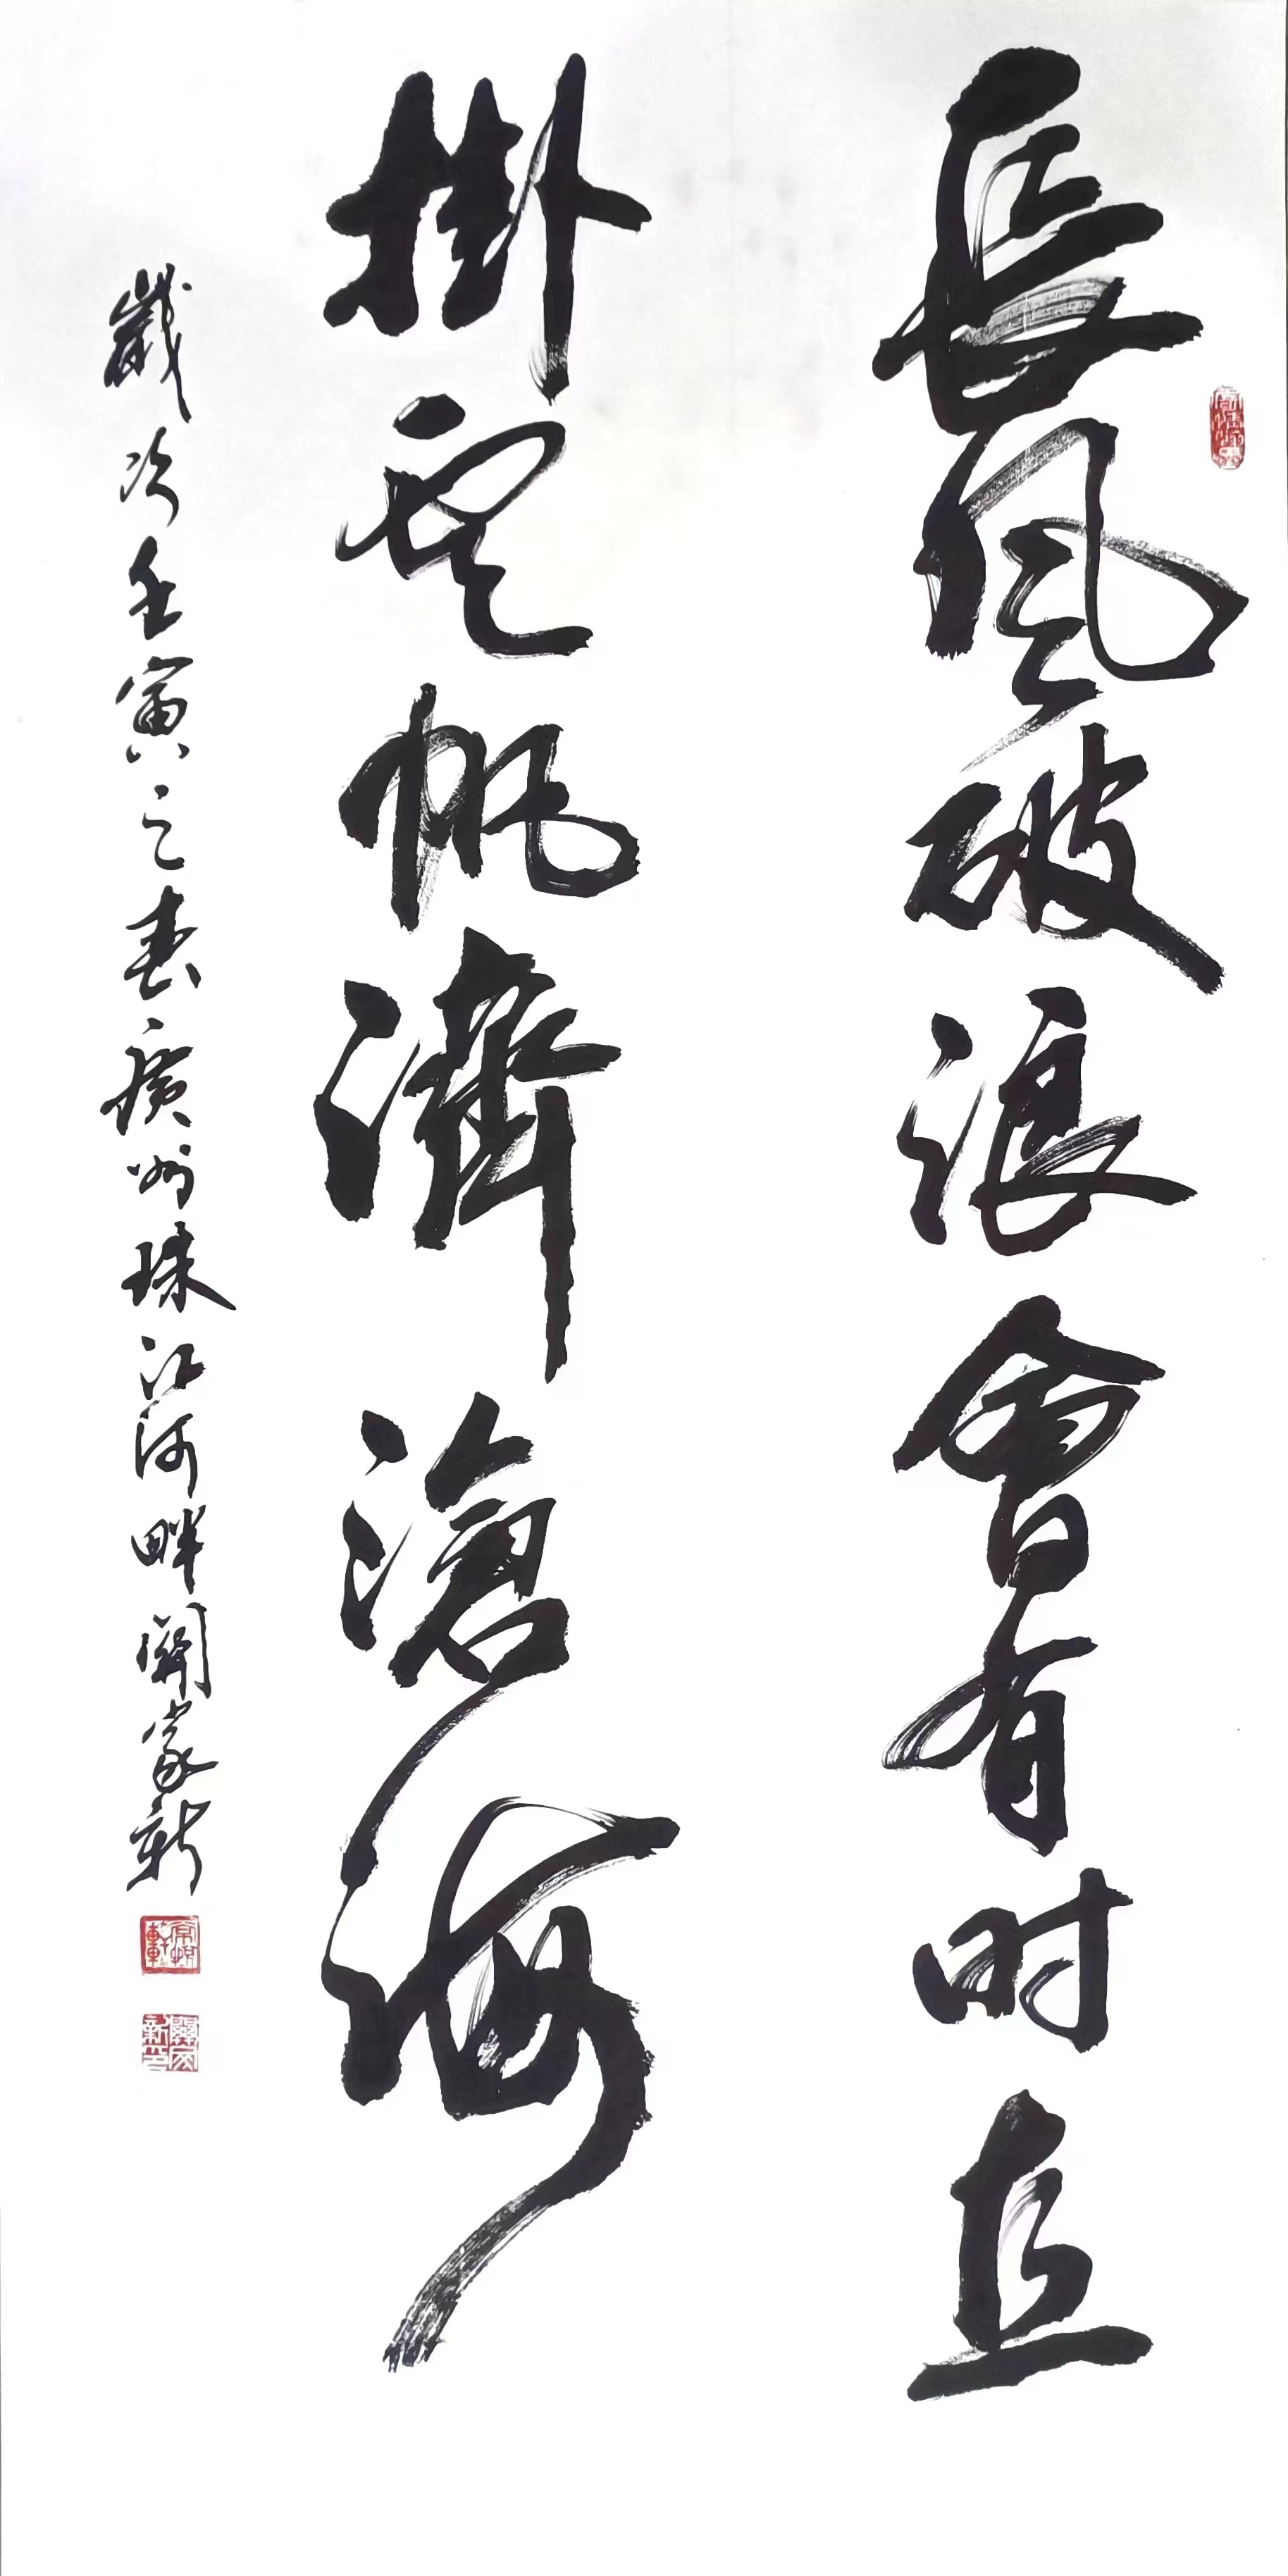 長風破浪會有时直
掛雲帆濟滄海
歲次壬寅之春廣州珠江河畔關家新
關家新印